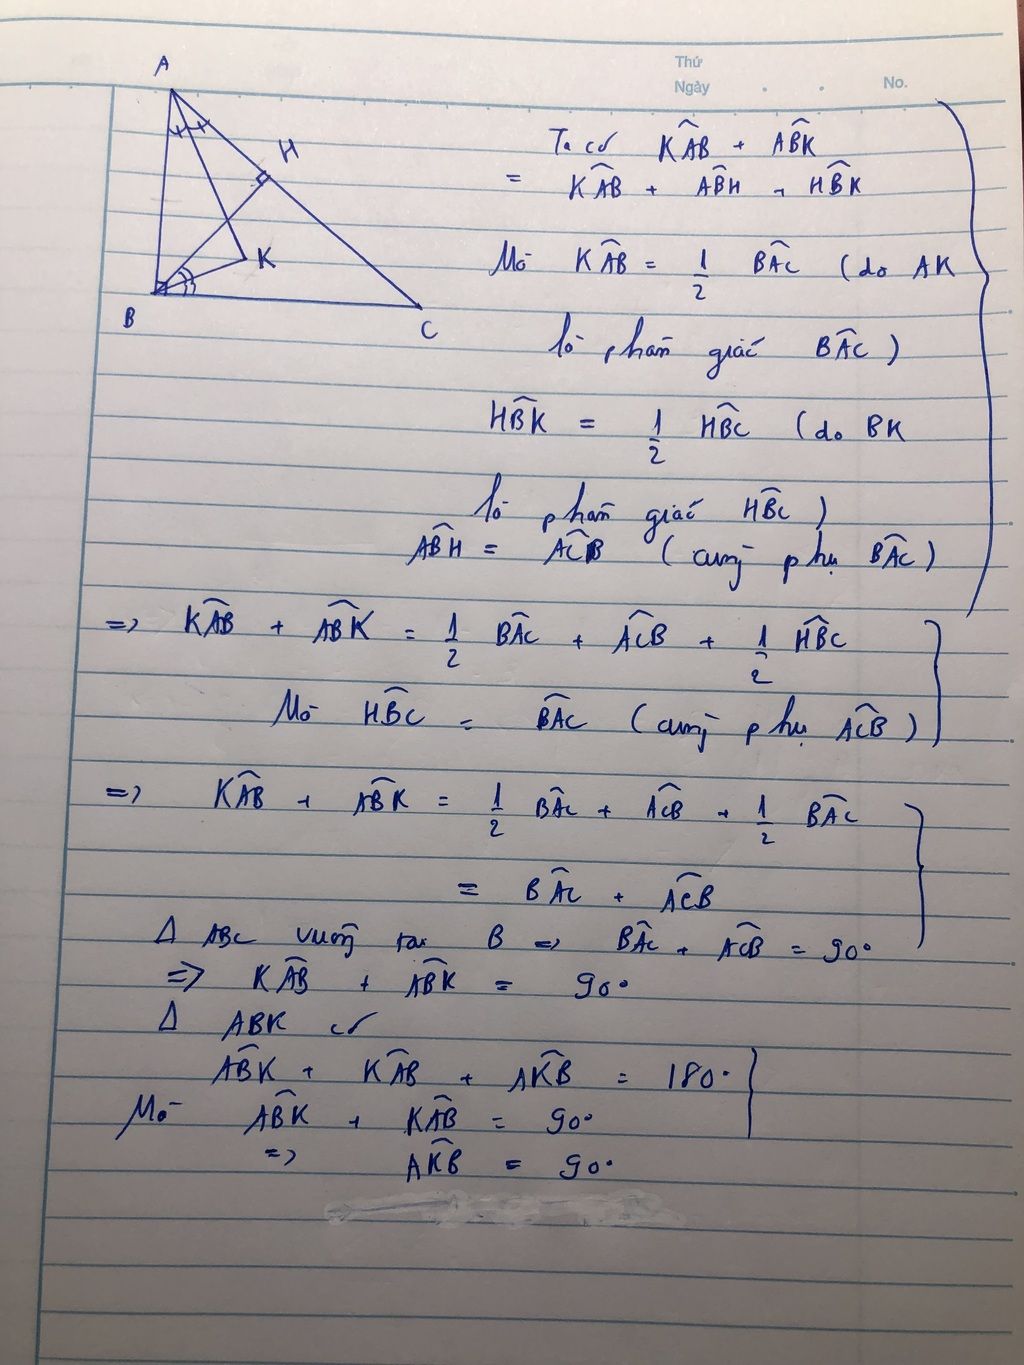 Thứ
Ngày
No.
A
H
K
B
C
Ta có KÂB + AB̂K
= KÂB + AB̂H + HB̂K
Mà KÂB = 1/2 BÂC (do AK
là phân giác BÂC)
HB̂K = 1/2 HB̂C (do BK
là phân giác HB̂C)
AB̂H = AĈB (cùng phụ BÂC)
=> KÂB + AB̂K = 1/2 BÂC + AĈB + 1/2 HB̂C
Mà HB̂C = BÂC (cùng phụ AĈB)
=> KÂB + AB̂K = 1/2 BÂC + AĈB + 1/2 BÂC
= BÂC + AĈB
Δ ABC vuông tại B => BÂC + AĈB = 90°
=> KÂB + AB̂K = 90°
Δ ABK có
AB̂K + KÂB + AK̂B = 180°
Mà AB̂K + KÂB = 90°
=> AK̂B = 90°